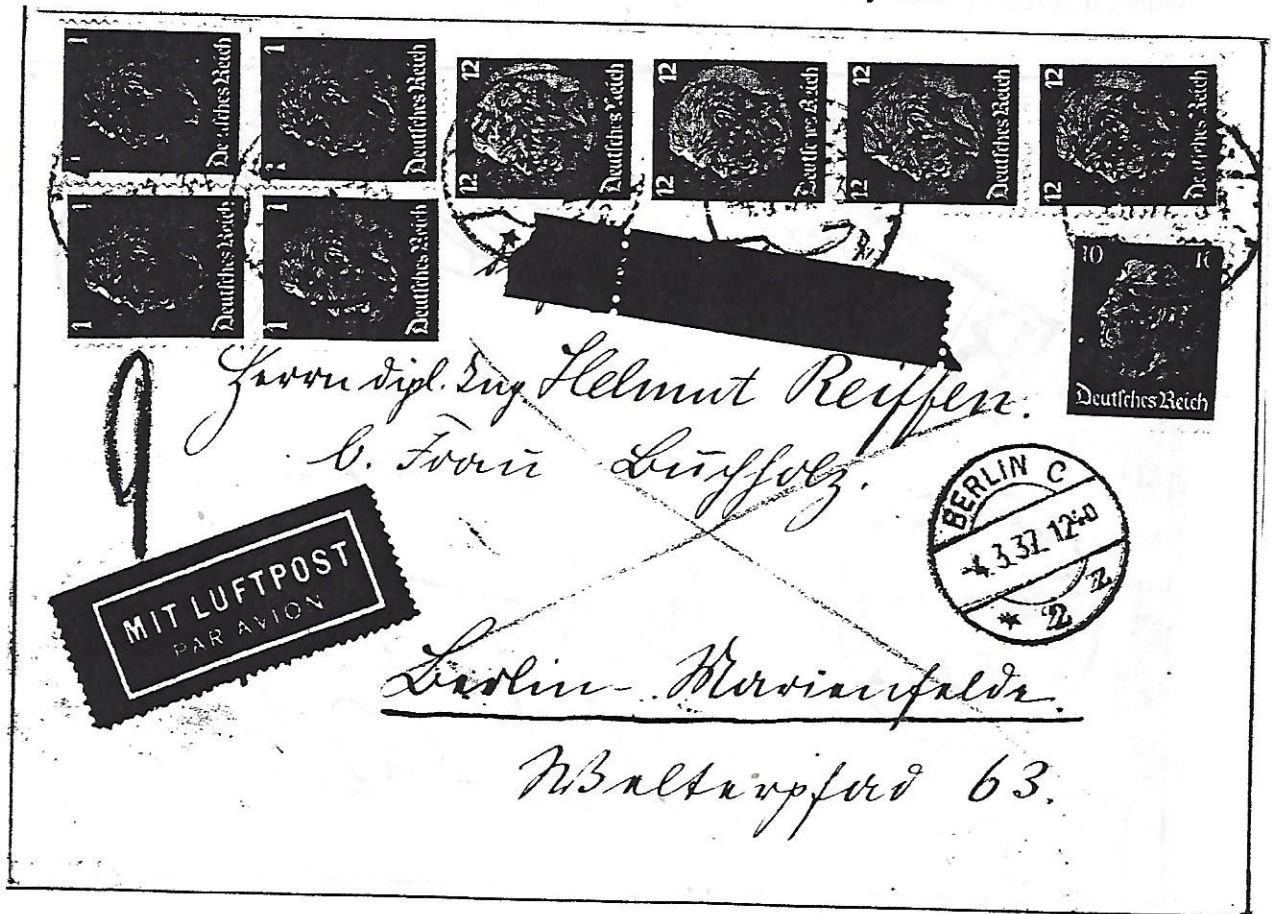 1 1
Deutsches Reich
1 1
Deutsches Reich
12 12
Deutsches Reich
12 12
Deutsches Reich
12 12
Deutsches Reich
12 12
Deutsches Reich
1 1
Deutsches Reich
1 1
Deutsches Reich
10 10
Deutsches Reich
Herrn dipl. Ing Helmut Reiffen.
b. Frau Buchholz.
BERLIN C
-4.3.37. 1240
* 2 z
MIT LUFTPOST
PAR AVION
Berlin-Marienfelde.
Welterpfad 63.